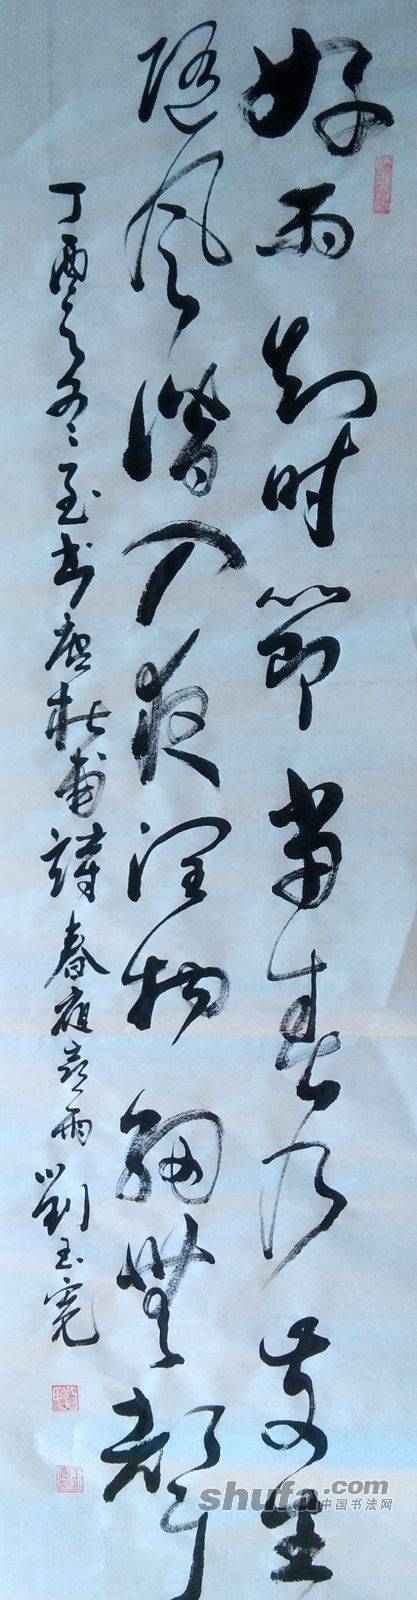 好雨知时節当春乃发生
随風潜入夜润物細無聲
丁酉之冬至书唐杜甫詩春夜喜雨劉玉寛
shufa.com
中国书法网